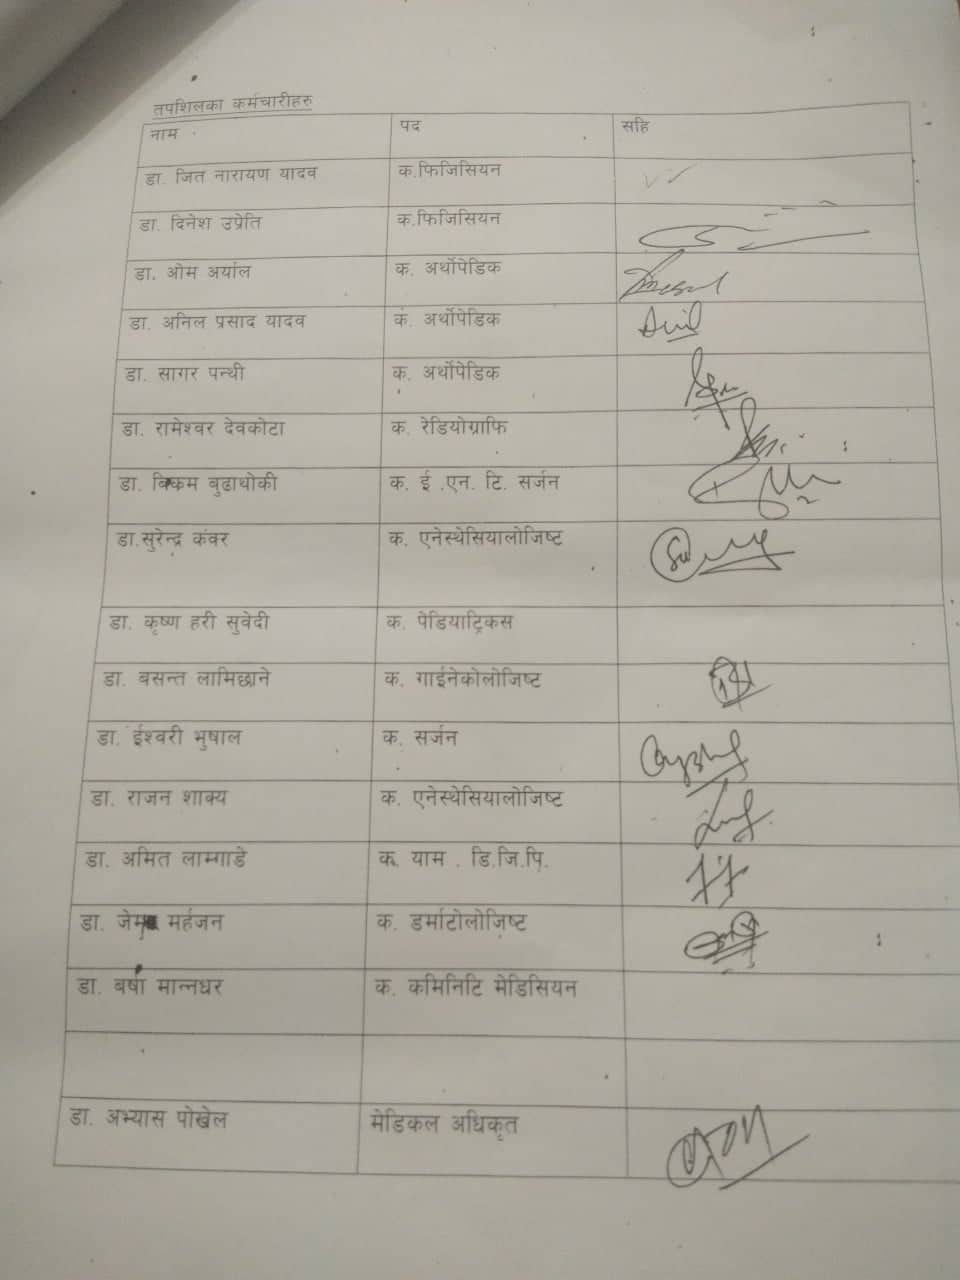 तपशिलका कर्मचारीहरु
नाम पद सहि
डा. जित नारायण यादव क.फिजिसियन
डा. दिनेश उप्रेति क.फिजिसियन
डा. ओम अर्याल क. अर्थोपेडिक
डा. अनिल प्रसाद यादव क. अर्थोपेडिक
डा. सागर पन्थी क. अर्थोपेडिक
डा. रामेश्वर देवकोटा क. रेडियोग्राफि
डा. बिक्रम बुढाथोकी क. ई .एन. टि. सर्जन
डा.सुरेन्द्र कंवर क. एनेस्थेसियालोजिष्ट
डा. कृष्ण हरी सुवेदी क. पेडियाट्रिकस
डा. बसन्त लामिछाने क. गाईनेकोलोजिष्ट
डा. ईश्वरी भुषाल क. सर्जन
डा. राजन शाक्य क. एनेस्थेसियालोजिष्ट
डा. अमित लाम्गाडे क. याम . डि.जि.पि.
डा. महंजन क. डर्माटोलोजिष्ट
डा. बर्षा मान्नधर क. कमिनिटि मेडिसियन
डा. अभ्यास पोखेल मेडिकल अधिकृत